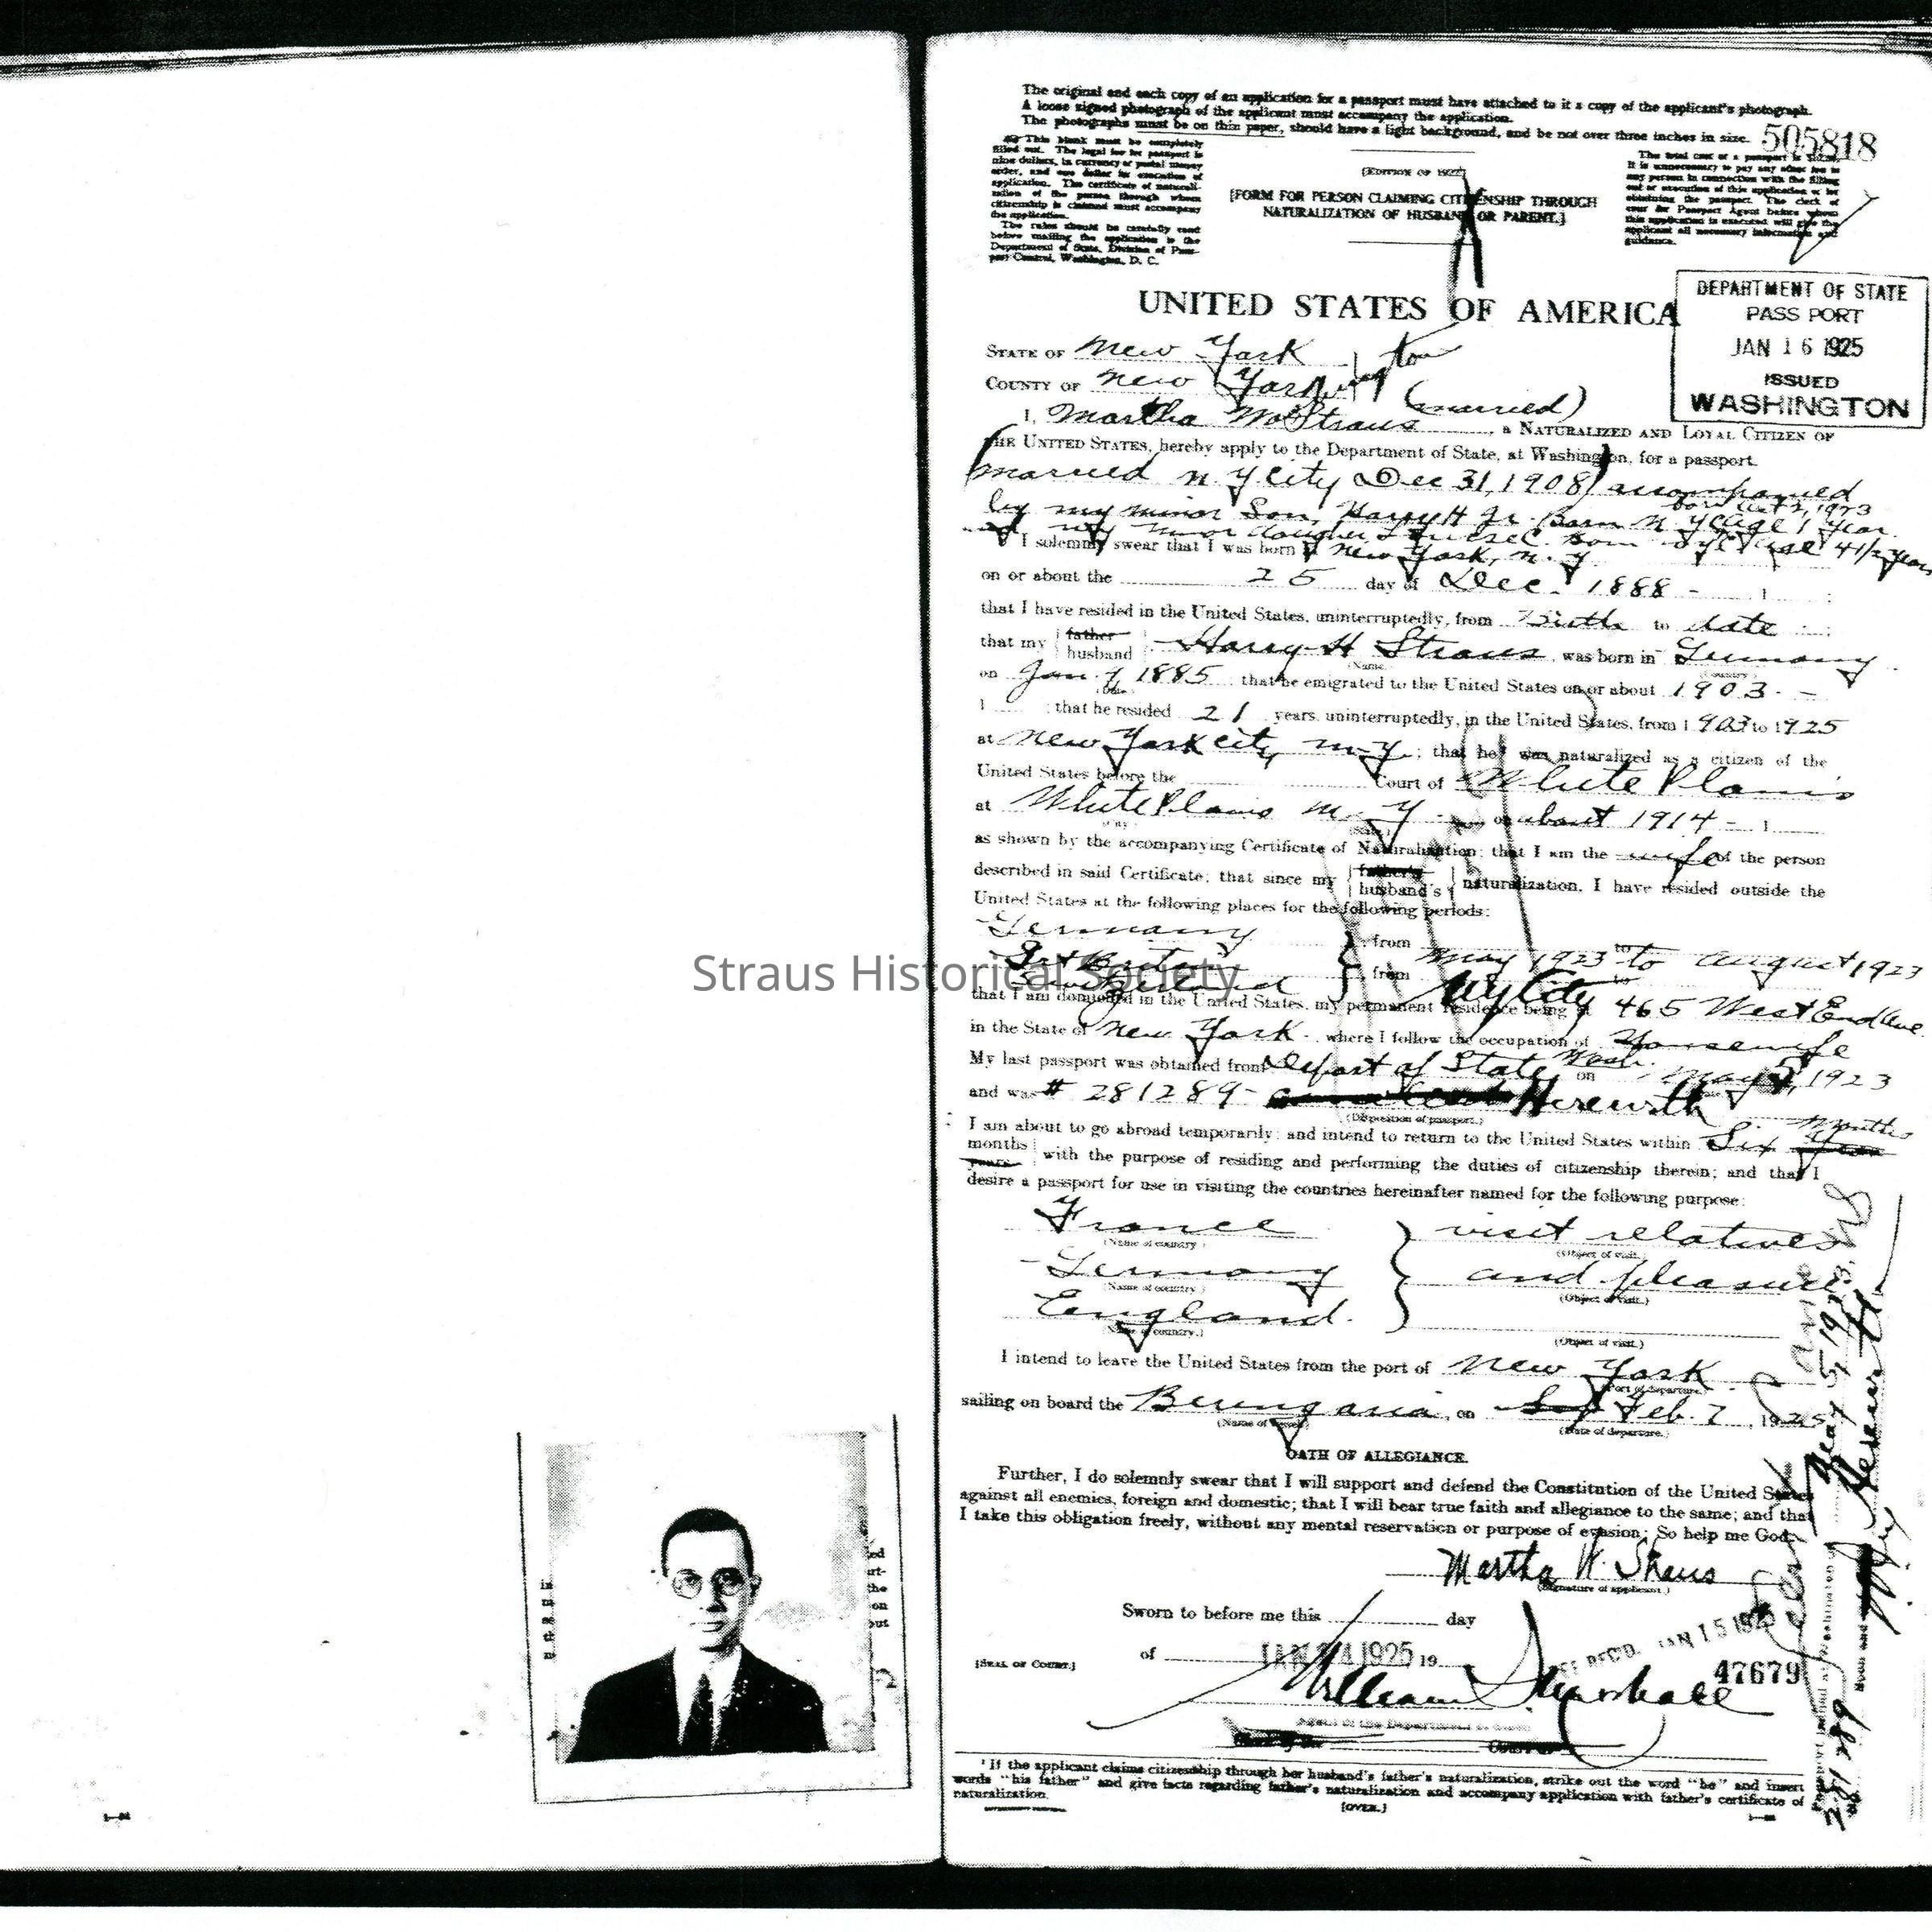 The original and each copy of an application for a passport must have attached to it a copy of the applicant's photograph.
A loose signed photograph of the applicant must accompany the application.
The photographs must be on thin paper, should have a light background, and be not over three inches in size.
505818
This blank must be completely
filled out. The legal fee for passport is
nine dollars, in currency or postal money
order, and one dollar for execution of
application. The certificate of naturali-
zation of the person through whom
citizenship is claimed must accompany
the application.
The rules should be carefully read
before mailing the application to the
Department of State, Division of Pass-
port Control, Washington, D. C.
[EDITION OF 1922]
[FORM FOR PERSON CLAIMING CITIZENSHIP THROUGH
NATURALIZATION OF HUSBAND OR PARENT.]
The total cost of a passport is
It is unnecessary to pay any other fee to
any person in connection with the filling
out or execution of this application or for
obtaining the passport. The clerk of
court or Passport Agent before whom
this application is executed will give the
applicant all necessary information and
guidance.
UNITED STATES OF AMERICA
DEPARTMENT OF STATE
PASSPORT
JAN 16 1925
ISSUED
WASHINGTON
STATE OF New York
COUNTY OF New York
(married)
I, Martha W Straus, a NATURALIZED AND LOYAL CITIZEN OF
THE UNITED STATES, hereby apply to the Department of State, at Washington, for a passport.
married N Y City Dec 31, 1908 accompanied
by my minor son, Harry H Jr. Born N Y C age 1 year
born Oct 2, 1923
my minor daughter born N Y C age 4 1/2 years
I solemnly swear that I was born New York, N. Y
on or about the 25 day of Dec. 1888
that I have resided in the United States, uninterruptedly, from Birth to date
that my father husband Harry H Straus was born in Germany
on Jan. 7 1885 that he emigrated to the United States on or about 1903
that he resided 21 years, uninterruptedly, in the United States, from 1903 to 1925
at New York City, N. Y.; that he was naturalized as a citizen of the
United States before the Court of White Plains
at White Plains N. Y about 1914
as shown by the accompanying Certificate of Naturalization; that I am the wife of the person
described in said Certificate; that since my father's husband's naturalization, I have resided outside the
United States at the following places for the following periods:
Germany
from May 1923 to August 1923
Grt Britain
Switzerland
from to
that I am domiciled in the United States, my permanent residence being at NY City 465 West End Ave
in the State of New York, where I follow the occupation of Housewife
My last passport was obtained from Depart of State, Wash. on May 5, 1923
and was # 281289 Herewith
(Disposition of passport.)
I am about to go abroad temporarily; and intend to return to the United States within Six months
months years with the purpose of residing and performing the duties of citizenship therein; and that I
desire a passport for use in visiting the countries hereinafter named for the following purpose:
France visit relatives
(Name of country.) (Object of visit.)
Germany and pleasure
(Name of country.) (Object of visit.)
England.
(Name of country.) (Object of visit.)
I intend to leave the United States from the port of New York
(Port of departure.)
sailing on board the Berengaria, on Feb. 7, 1925
(Name of vessel.) (Date of departure.)
OATH OF ALLEGIANCE.
Further, I do solemnly swear that I will support and defend the Constitution of the United States
against all enemies, foreign and domestic; that I will bear true faith and allegiance to the same; and that
I take this obligation freely, without any mental reservation or purpose of evasion: So help me God.
Martha W. Straus
(Signature of applicant.)
Sworn to before me this day
of JAN 14 1925 19
[SEAL OF COURT.]
REC'D. JAN 15 1925
47679
William S Marshall
Agent of the Department of State
¹ If the applicant claims citizenship through her husband's father's naturalization, strike out the word "he" and insert
words "his father" and give facts regarding father's naturalization and accompany application with father's certificate of
naturalization.
[OVER.]
281289
May 5 1923
Straus Historical Society